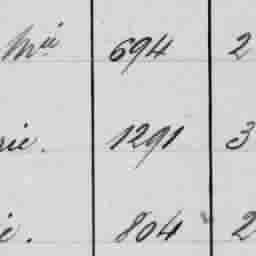 694 2
rie. 1291 3
e. 804 2